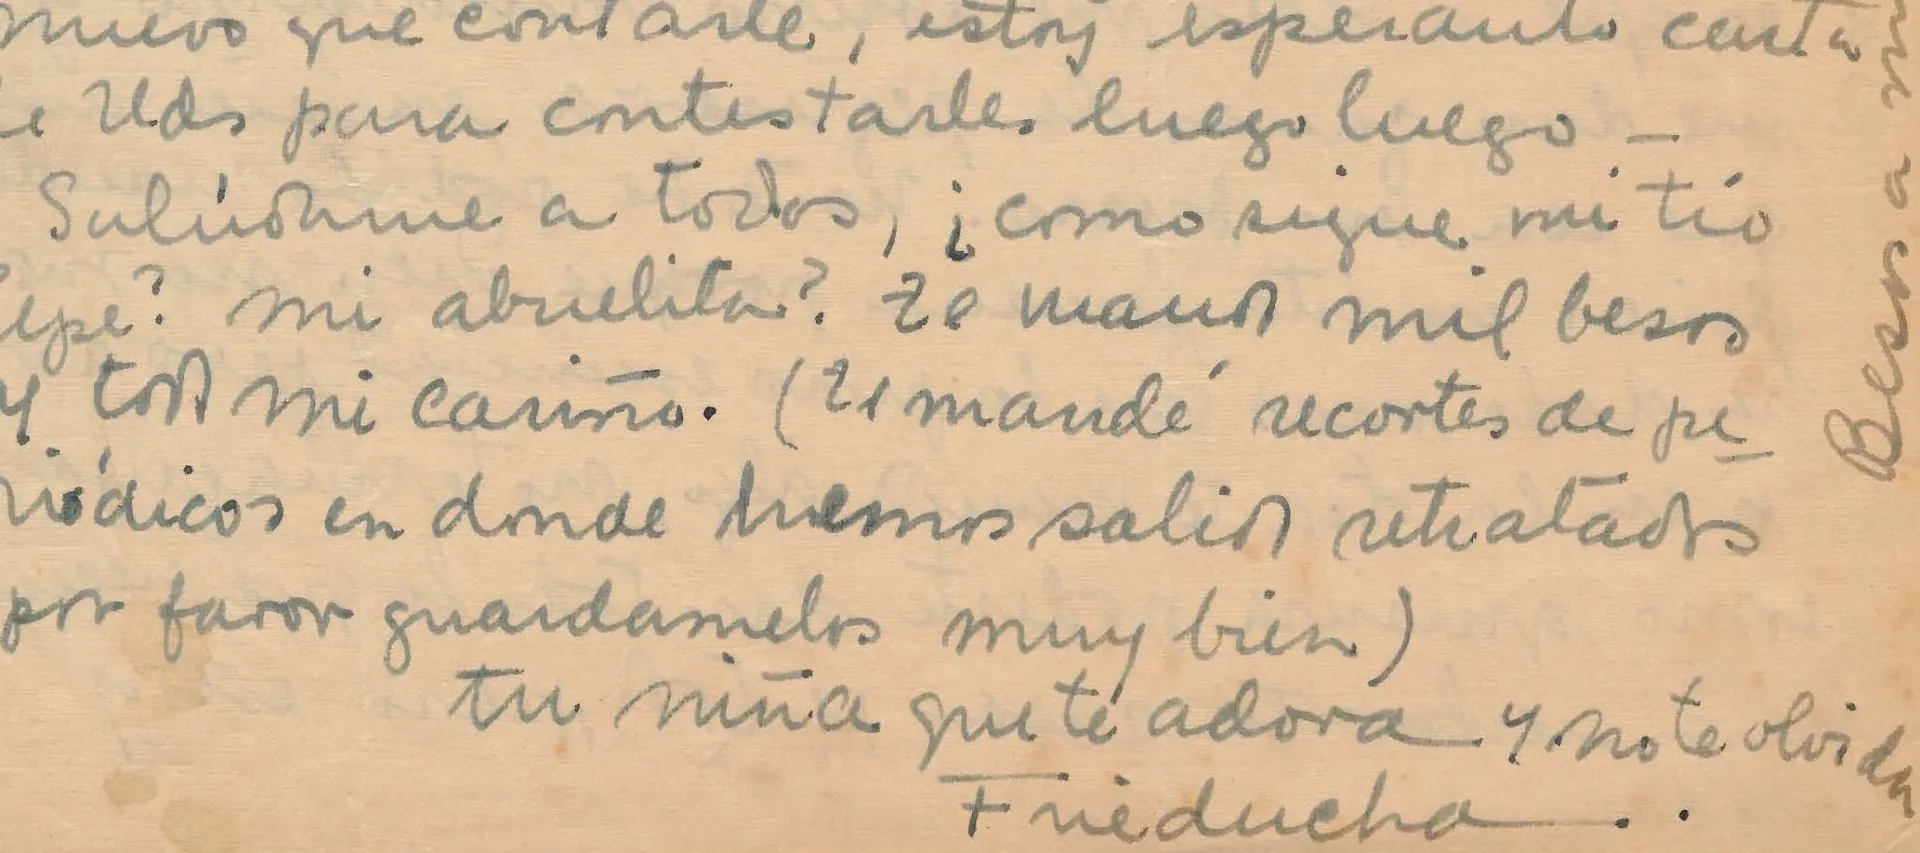 nuevo que contarle, estoy esperando carta
de Uds para contestarles luego luego —
Salúdenme a todos, ¿como sigue mi tío
Pepe? mi abuelita? Te mando mil besos
y todo mi cariño. (Te mandé recortes de pe
riódicos en donde hemos salido retratados
por favor guardamelos muy bien)
tu niña que te adora y no te olvida
Frieducha . .
Besos a